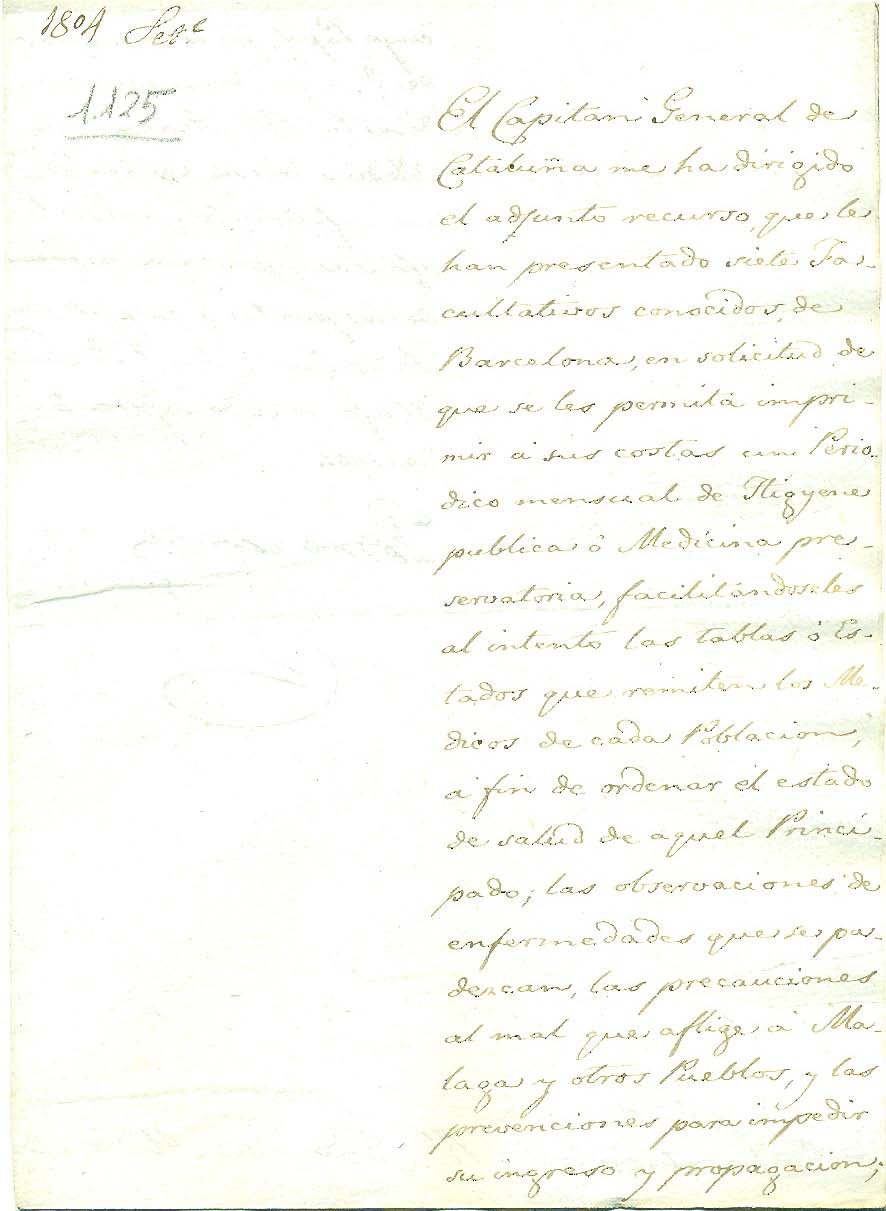 1804 Set.e
1.125
El Capitan General de
Cataluña me ha dirigido
el adjunto recurso, que le
han presentado siete Fa-
cultativos conocidos, de
Barcelona, en solicitud de
que se les permita impri-
mir á sus costas un Perio-
dico mensual de Higyene
publica ó Medicina pre-
servatoria, facilitándoseles
al intento las tablas ó Es-
tados que remiten los Me-
dicos de cada Poblacion,
á fin de ordenar el estado
de salud de aquel Princi-
pado; las observaciones de
enfermedades que se pa-
dezcan, las precauciones
al mal que aflige á Ma-
laga y otros Pueblos, y las
prevenciones para impedir
su ingreso y propagacion;